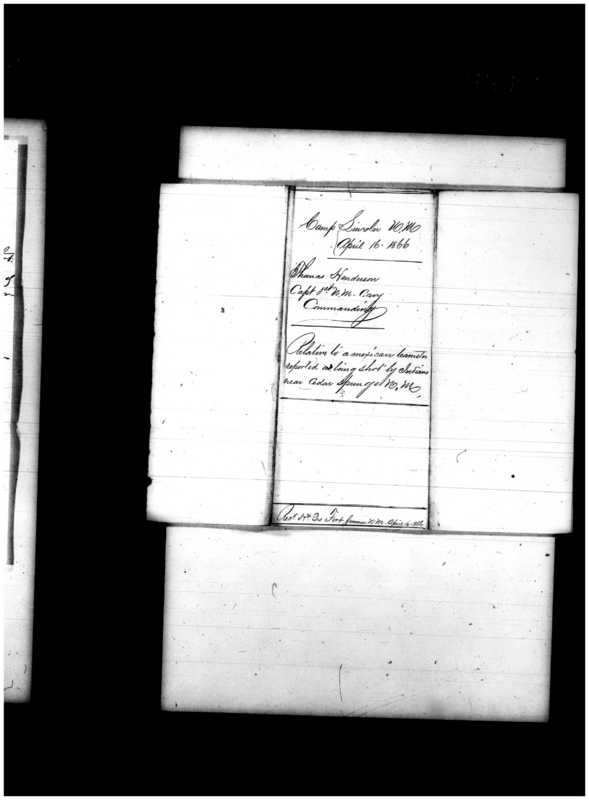 Camp Lincoln N.M.
April 16. 1866
Thomas Henderson
Capt 1st N.M. Cavy
Commanding
Relative to a mexican teamster
reported as being shot by Indians
near Cedar Springs N.M.
Recd Hd Qrs Fort N.M. April 1866